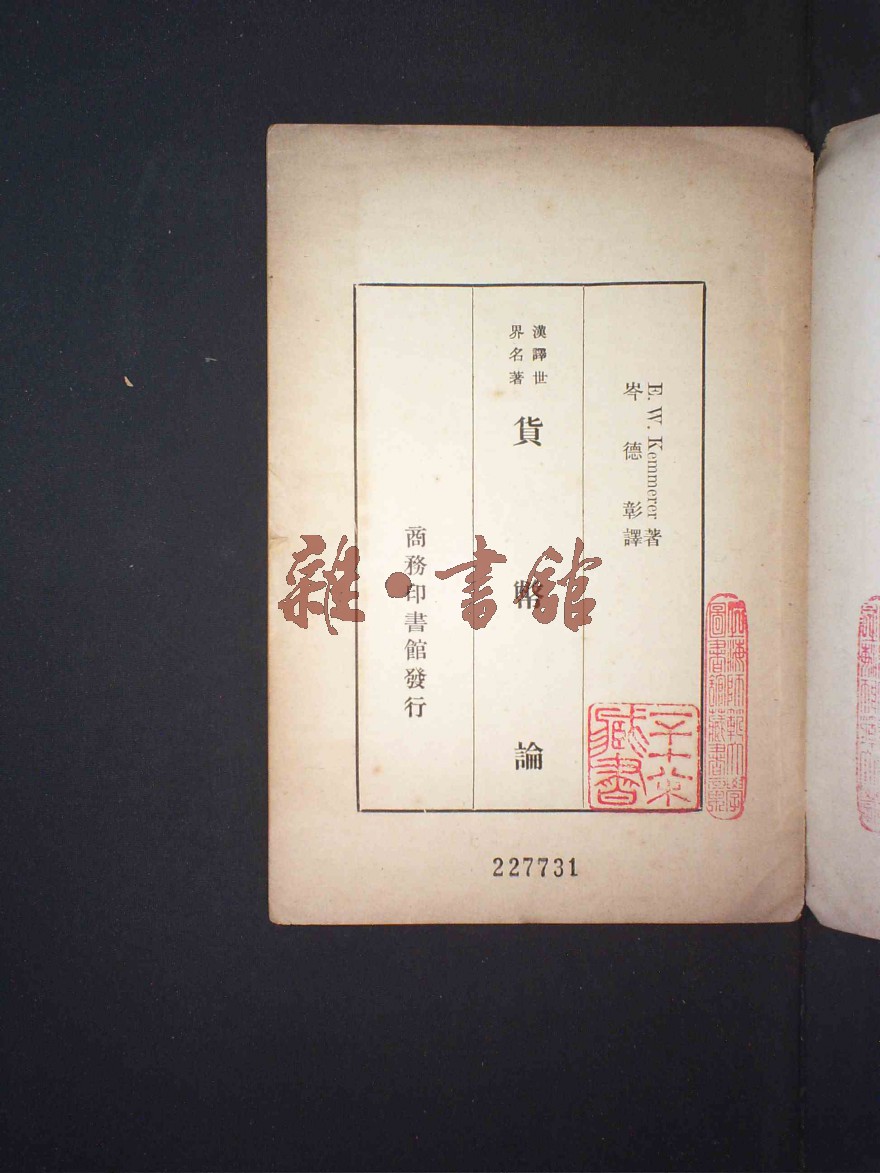 E. W. Kemmerer 著
岑德彰譯
漢譯世
界名著
貨幣論
商務印書館發行
雜·書館
227731
藏書
圖書館藏書